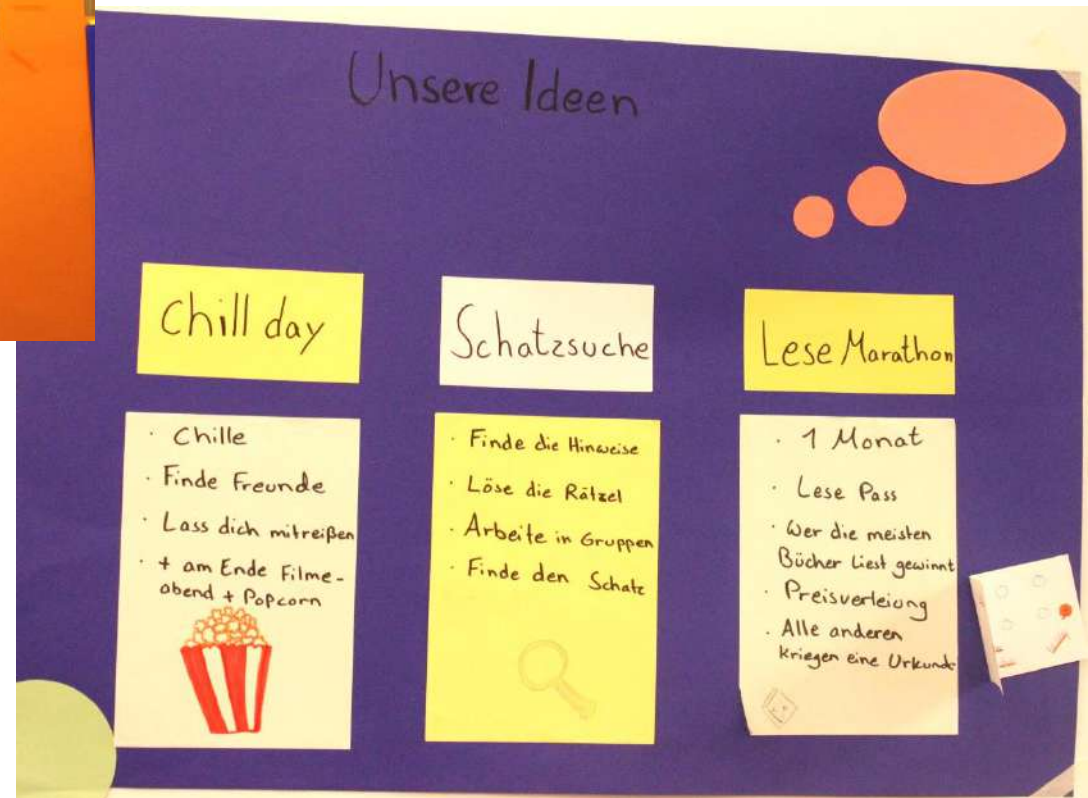 Unsere Ideen
Chill day
· Chille
· Finde Freunde
· Lass dich mitreißen
· + am Ende Filme-
abend + Popcorn
Schatzsuche
· Finde die Hinweise
· Löse die Rätzel
· Arbeite in Gruppen
· Finde den Schatz
Lese Marathon
· 1 Monat
· Lese Pass
· Wer die meisten
Bücher Liest gewinnt
· Preisverleiung
· Alle anderen
kriegen eine Urkunde